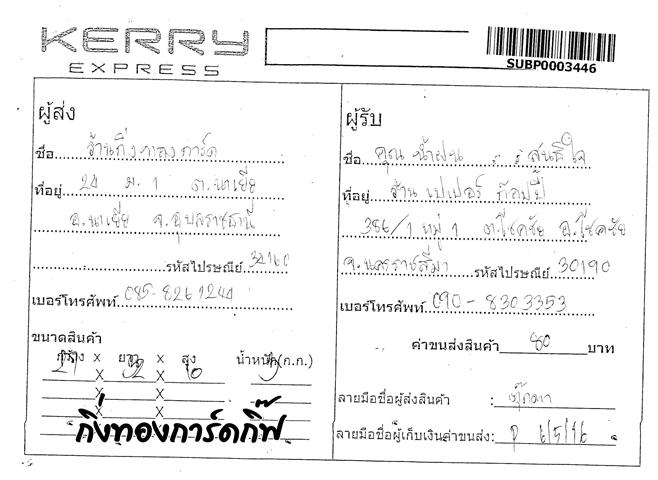 KERRY
EXPRESS
SUBP0003446
ผู้ส่ง
ชื่อ ร้านกิ่งทองการ์ด
ที่อยู่ 24 ม. 1 ต.นาเยีย
อ.นาเยีย จ.อุบลราชธานี
รหัสไปรษณีย์ 34160
เบอร์โทรศัพท์ 085-8261244
ขนาดสินค้า
กว้าง X ยาว X สูง น้ำหนัก(ก.ก.)
X X
X X
X X
X
กิ่งทองการ์ดกิ๊ฟ
ผู้รับ
ชื่อ คุณ น้ำฝน สนธิใจ
ที่อยู่ ร้าน เปเปอร์ ก๊อปปี้
386/1 หมู่ 1 ต.โชคชัย อ.โชคชัย
จ.นครราชสีมา รหัสไปรษณีย์ 30190
เบอร์โทรศัพท์ 090-8303353
ค่าขนส่งสินค้า 80 บาท
ลายมือชื่อผู้ส่งสินค้า : ตุ๊กตา
ลายมือชื่อผู้เก็บเงินค่าขนส่ง: 6/5/16